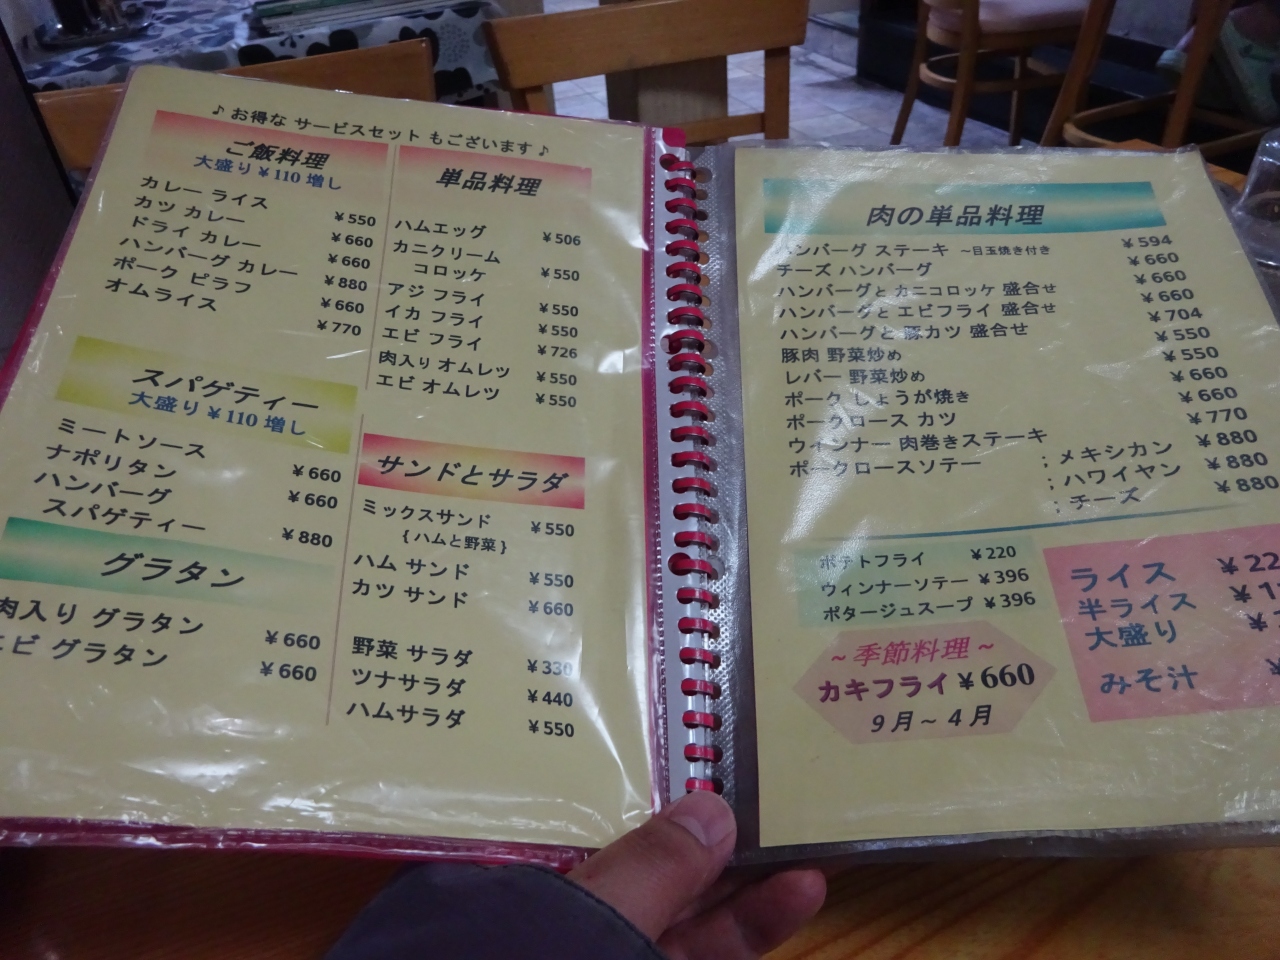 ♪ お得な サービスセット もございます ♪
ご飯料理
大盛り ¥110 増し
カレー ライス ¥550
カツ カレー ¥660
ドライ カレー ¥660
ハンバーグ カレー ¥880
ポーク ピラフ ¥660
オムライス ¥770
スパゲティー
大盛り ¥110 増し
ミートソース ¥660
ナポリタン ¥660
ハンバーグ
スパゲティー ¥880
グラタン
肉入り グラタン ¥660
エビ グラタン ¥660
単品料理
ハムエッグ ¥506
カニクリーム
コロッケ ¥550
アジ フライ ¥550
イカ フライ ¥550
エビ フライ ¥726
肉入り オムレツ ¥550
エビ オムレツ ¥550
サンドとサラダ
ミックスサンド ¥550
{ハムと野菜}
ハム サンド ¥550
カツ サンド ¥660
野菜 サラダ ¥330
ツナサラダ ¥440
ハムサラダ ¥550
肉の単品料理
ハンバーグ ステーキ ～目玉焼き付き ¥594
チーズ ハンバーグ ¥660
ハンバーグと カニコロッケ 盛合せ ¥660
ハンバーグと エビフライ 盛合せ ¥660
ハンバーグと 豚カツ 盛合せ ¥704
豚肉 野菜炒め ¥550
レバー 野菜炒め ¥550
ポーク しょうが焼き ¥660
ポークロース カツ ¥660
ウィンナー 肉巻きステーキ ¥770
ポークロースソテー ；メキシカン ¥880
；ハワイヤン ¥880
；チーズ ¥880
ポテトフライ ¥220
ウィンナーソテー ¥396
ポタージュスープ ¥396
～季節料理～
カキフライ ¥660
9月～4月
ライス ¥22
半ライス ¥1
大盛り ¥
みそ汁 ¥